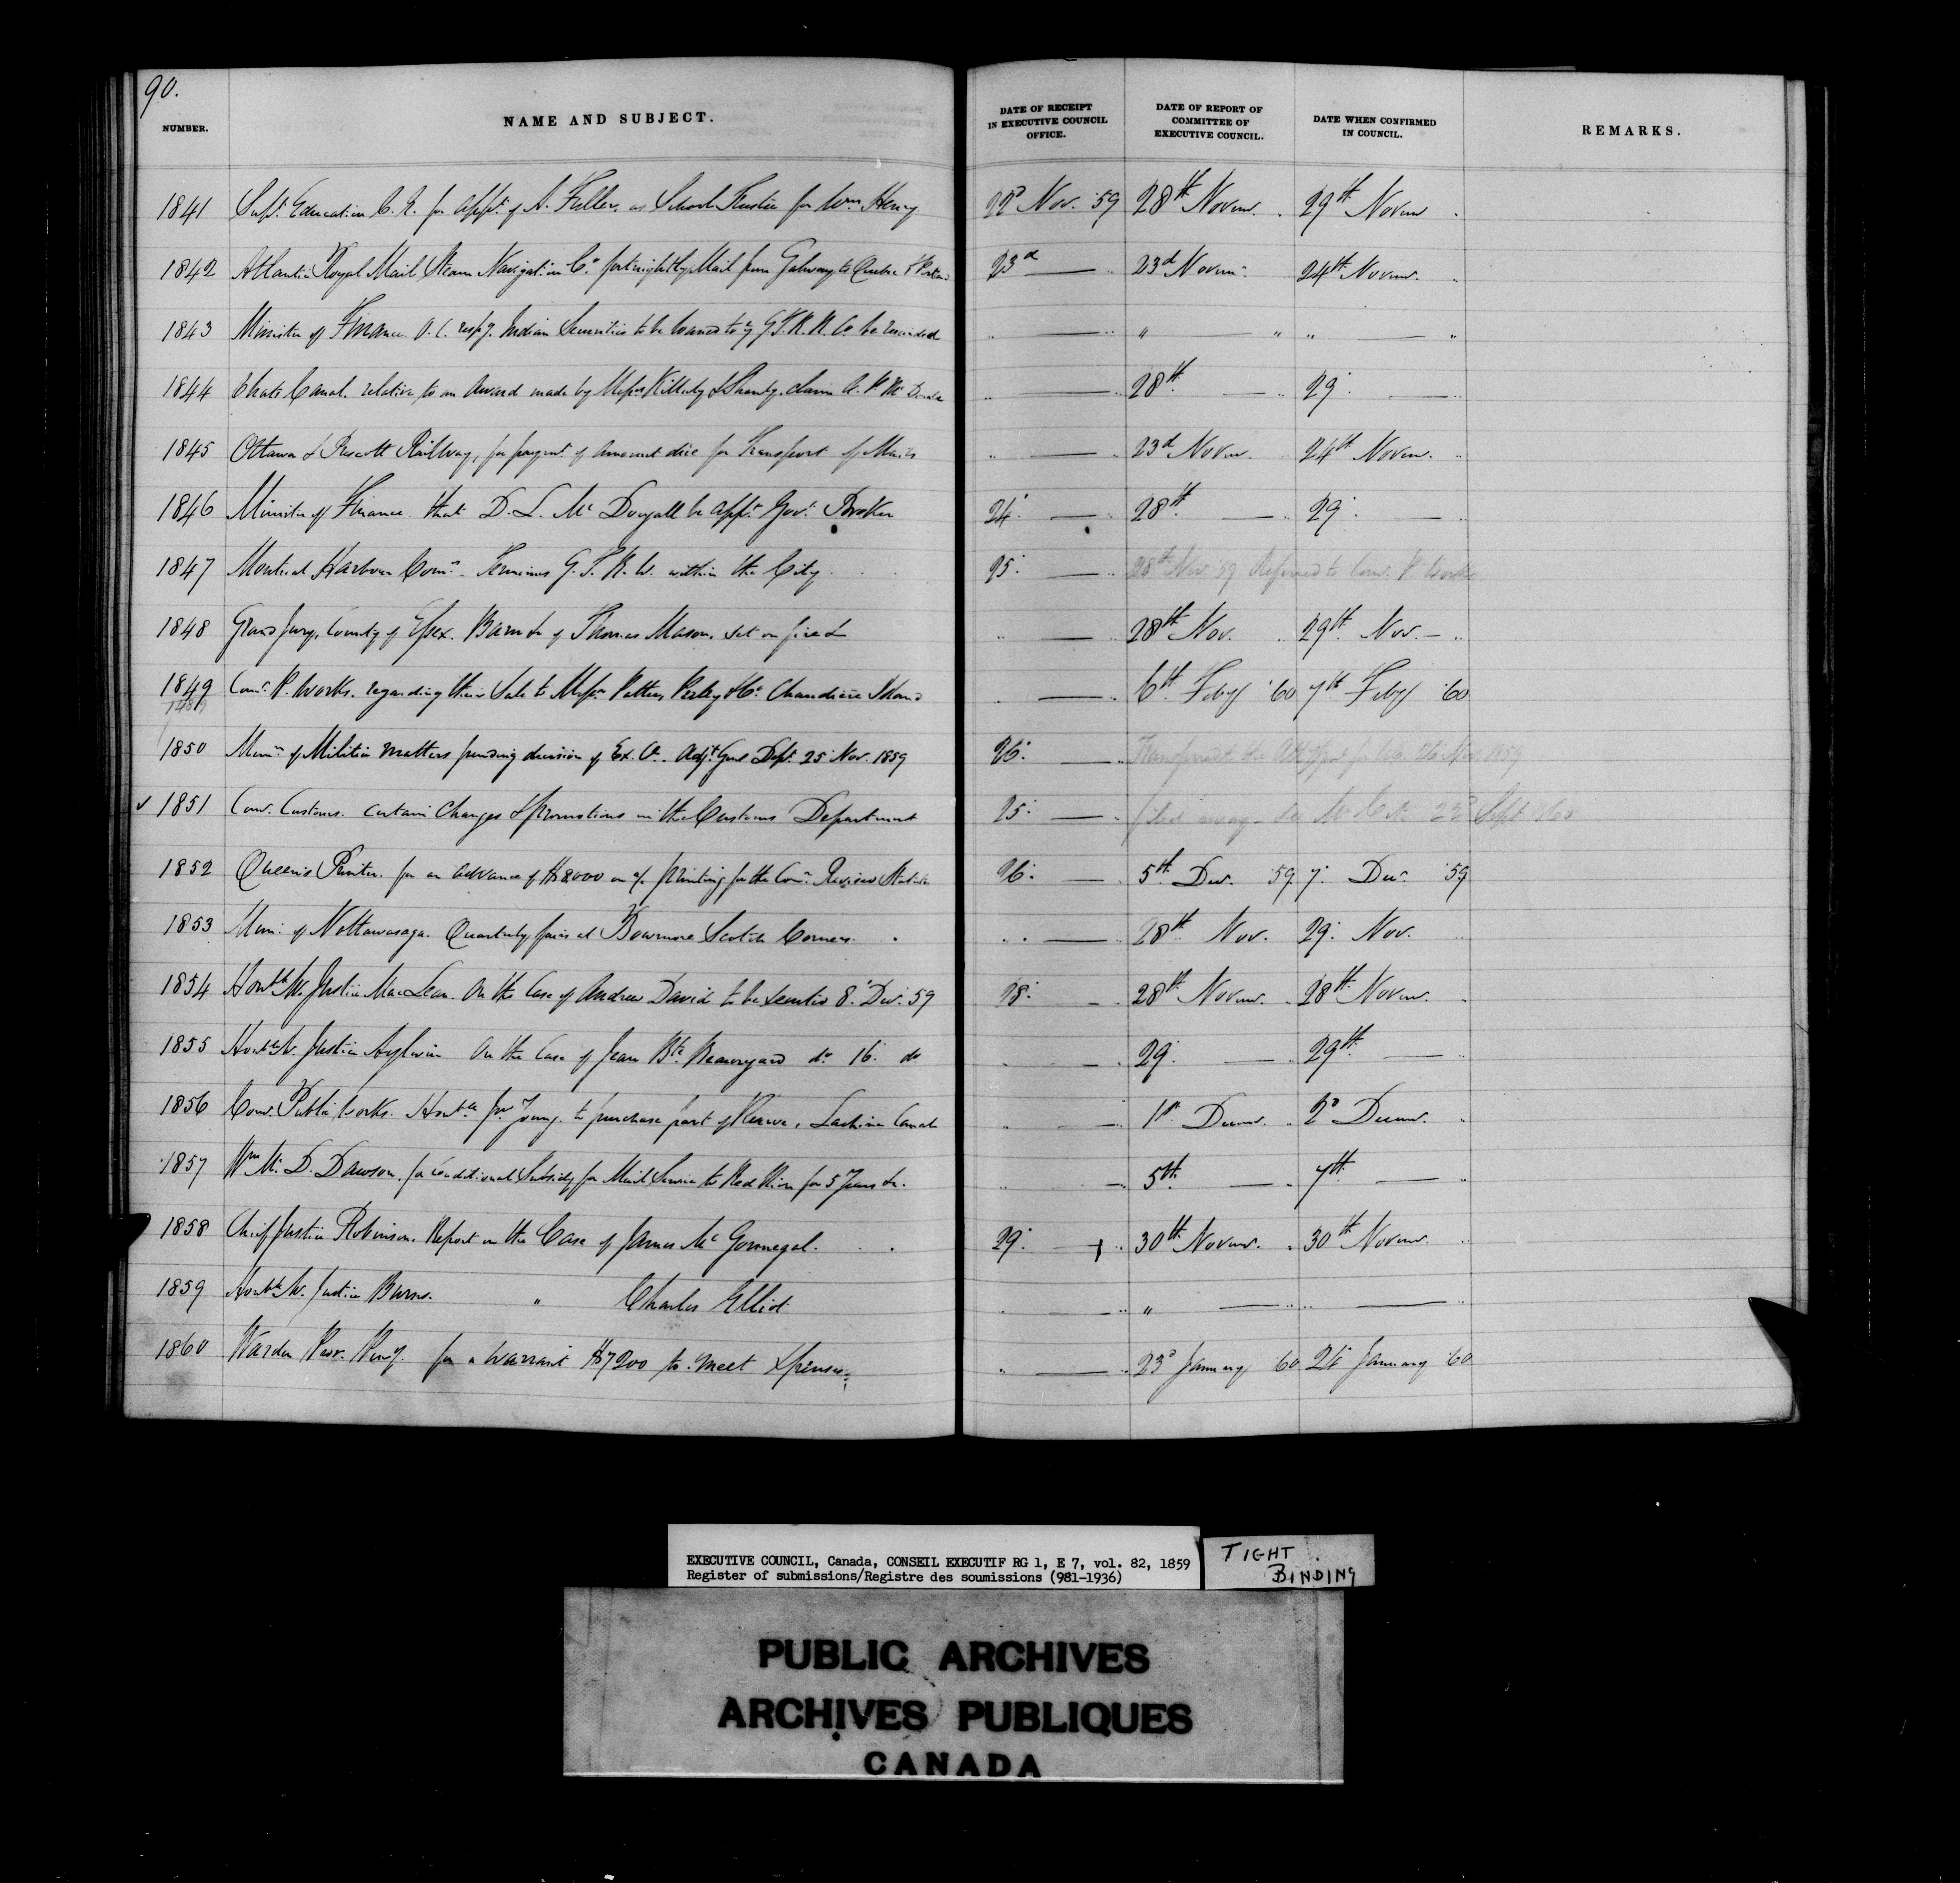 90.
NUMBER. NAME AND SUBJECT. DATE OF RECEIPT IN EXECUTIVE COUNCIL OFFICE. DATE OF REPORT OF COMMITTEE OF EXECUTIVE COUNCIL. DATE WHEN CONFIRMED IN COUNCIL. REMARKS.
1841 Supt. Education for appt. of A. Fuller, as School Trustee for Wm Henry 22d Nov. 59 28th Novem. 29th Novem
1842 Atlantic Royal Mail Steam Navigation Co. fortnightly Mail from Galway to Quebec & 23d 23d Novem. 24th Novem.
1843 Minister of Finance. O.C. respg. Indian Securities to be loaned to G.T.R.R. Co. be rescinded " " " "
1844 Chats Canal. relative to an Award made by Messrs Killaly & Shanly. claim A. P. McDonald 28th 29
1845 Ottawa & Prescott Railway, for paymt. of amount due for Transport of Mails 23d Novem. 24th Novem.
1846 Minister of Finance that D. L. Mc Dougall be appt. Govt. Broker 24. 28th 29
1847 Montreal Harbour Comrs. Terminus G. T. R. W. within the City 25. 28th Nov. 59 Referred to Comr. P. Works
1848 Grand Jury, County of Essex. Barn &c of Thomas Mason, set on fire &c 28th Nov. 29th Nov.
1849 Comr. P. Works. regarding their Sale to Messrs Pattee, Perley & Co. Chaudiere Island 6th Feby 60 7th Feby 60
1850 Memn. of Militia matters pending decision of Ex. C. Adjt. Genl Dept. 25 Nov. 1859 26. Transferred to the 26 Nov 1859
✓ 1851 Comr. Customs. certain changes & promotions in the Customs Department 25. filed away 22d Sept 1860
1852 Queen's Printer. for an advance of $8000 on a/c printing for the Comr. Revised Statutes 26. 5th Decr. 59 7. Decr. 59
1853 Mun. of Nottawasaga. Quarterly fairs at Bowmore Scotch Corners. 28th Nov. 29. Nov.
1854 Honble Mr. Justice MacLean. On the Case of Andrew David to be executed 8. Decr. 59 28. 28th Novem. 28th Novem.
1855 Honble Mr. Justice Aylwin On the Case of Jean Bte. Beauregard do 16. do 29. 29th
1856 Comr. Public Works. Honble Jno Young. to purchase part of Reserve, Lachine Canal 1st Decemr. 2d Decemr.
1857 Wm Mc. D. Dawson, for conditional Subsidy for Mail Service to Red River for 5 Years &c. 5th 7th
1858 Chief Justice Robinson. Report on the Case of James Mc Gonnegal. 29. 30th Novemr. 30th Novemr.
1859 Honble Mr. Justice Burns. " Charles Elliot "
1860 Warden Prov. Peny. for a warrant $7200 to meet Expenses 23d January 60 24 January 60
EXECUTIVE COUNCIL, Canada, CONSEIL EXECUTIF RG 1, E 7, vol. 82, 1859
Register of submissions/Registre des soumissions (981-1936)
TIGHT BINDING
PUBLIC ARCHIVES
ARCHIVES PUBLIQUES
CANADA